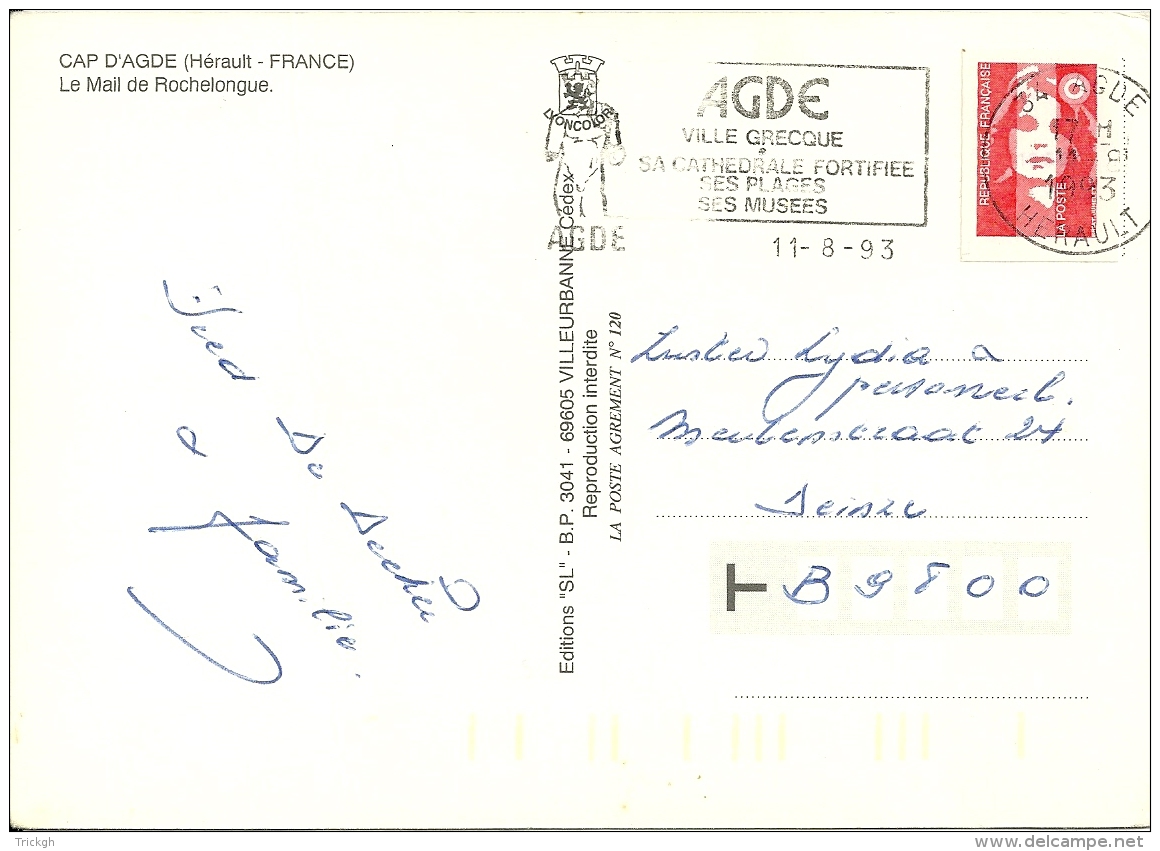 CAP D'AGDE (Hérault - FRANCE)
Le Mail de Rochelongue.
LYONCOLOR
AGDE
AGDE
VILLE GRECQUE
SA CATHEDRALE FORTIFIEE
SES PLAGES
SES MUSEES
11-8-93
REPUBLIQUE FRANÇAISE
LA POSTE
34 AGDE
17 H
11 - 8
1993
HERAULT
Editions "SL" - B.P. 3041 - 69605 VILLEURBANNE Cédex
Reproduction interdite
LA POSTE AGREMENT N° 120
De
& familie.
Lydia &
personeel.
24
Deinze
T B 9800
Trickgh
delcampe.net